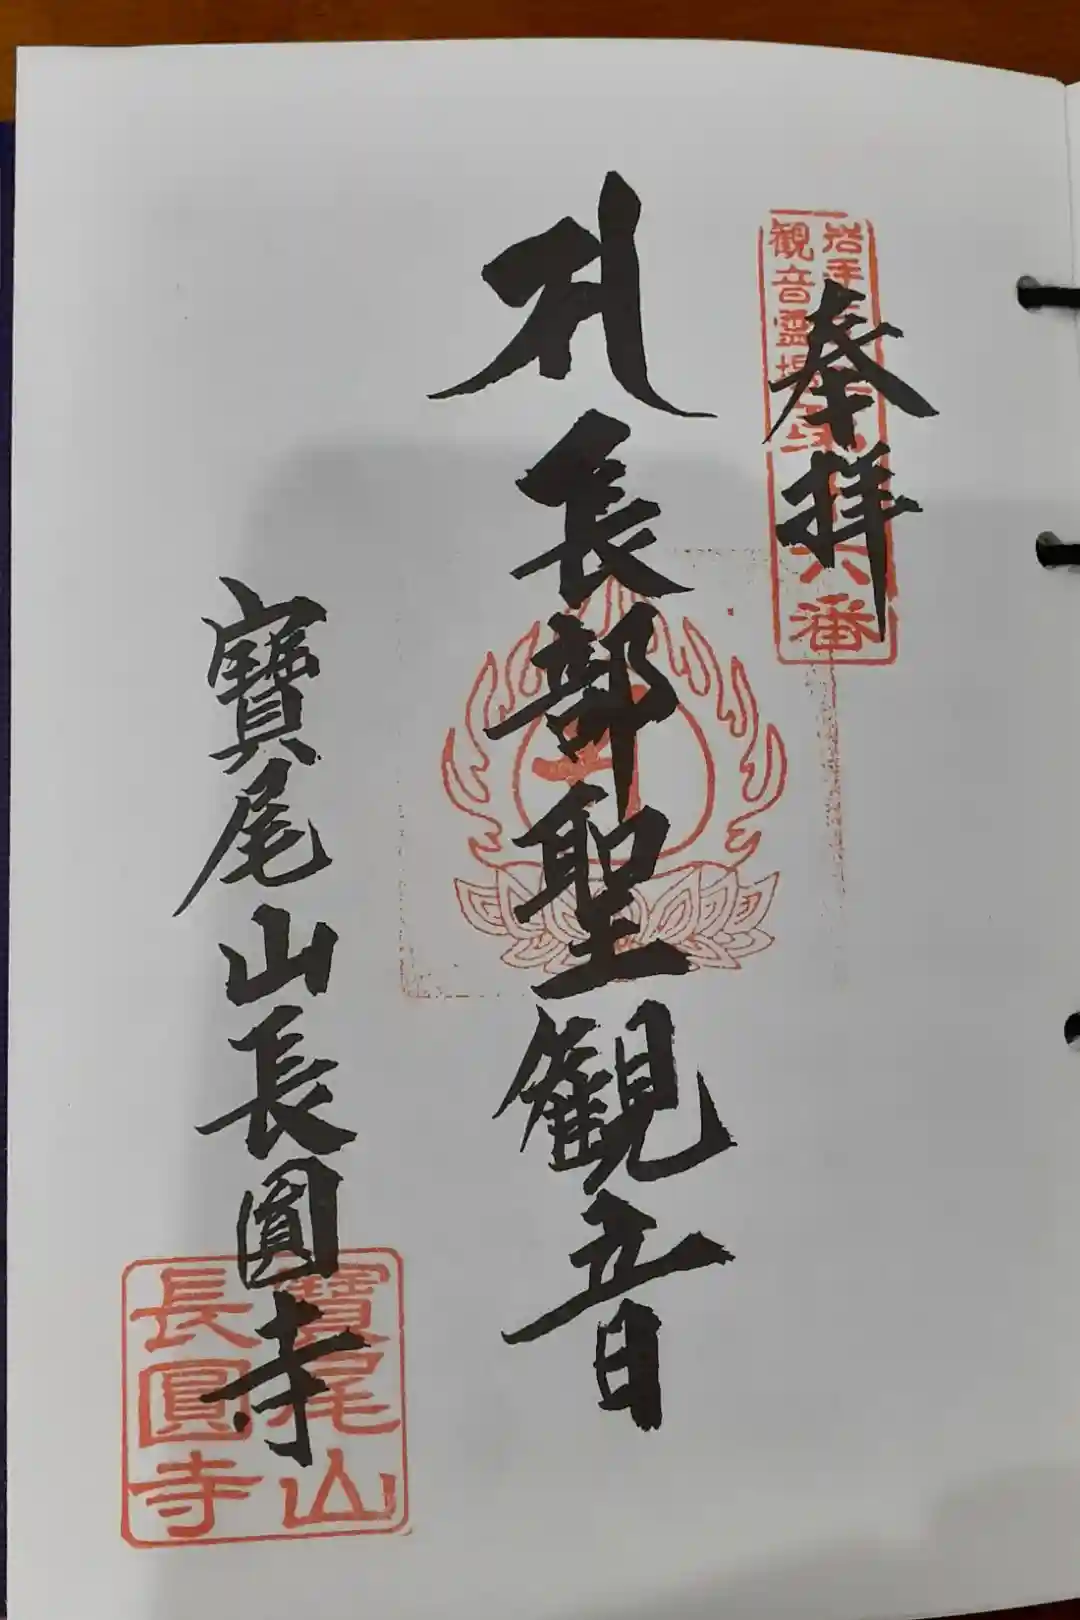 奉拝
岩手
観音霊場
六番
𑖭 長部聖観音
寶尾山長圓寺
寶尾山
長圓寺